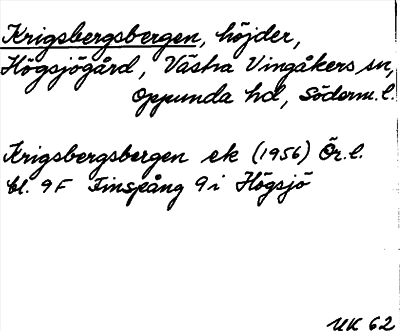 Krigsbergsbergen, höjder,
Högsjögård, Västra Vingåkers sn,
Oppunda hd, Söderm.l.
Krigsbergsbergen ek (1956) Ör.l.
bl. 9F Finspång 9i Högsjö
UK 62